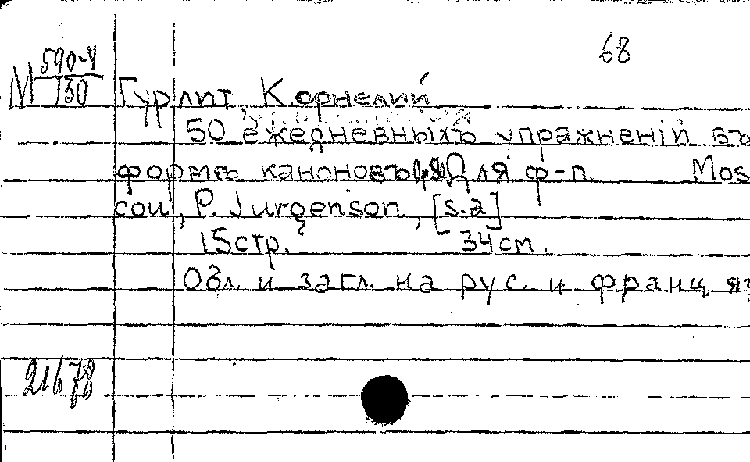 68
М 590-V
130
Гурлит, Корнелий
50 ежедневныхъ упражненій въ
формѣ каноновъ Для ф-п. Mos
cou, P. Jurgenson, [s.a]
15 стр. 34 cm.
Обл. и загл. на рус. и франц яз
21678